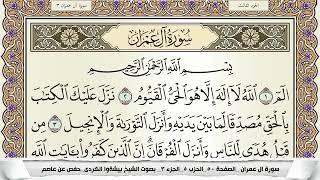 الجزء الثالث
سورة آل عمران ٣
سُورَةُ آلِ عِمْرَان
بِسْمِ اللَّهِ الرَّحْمَٰنِ الرَّحِيمِ
الٓمٓ ١ اللَّهُ لَا إِلَٰهَ إِلَّا هُوَ الْحَيُّ الْقَيُّومُ ٢ نَزَّلَ عَلَيْكَ الْكِتَٰبَ
بِالْحَقِّ مُصَدِّقًا لِّمَا بَيْنَ يَدَيْهِ وَأَنزَلَ التَّوْرَىٰةَ وَالْإِنجِيلَ ٣ مِن
قَبْلُ هُدًى لِّلنَّاسِ وَأَنزَلَ الْفُرْقَانَ إِنَّ الَّذِينَ كَفَرُوا بِـَٔايَٰتِ اللَّهِ
سورة ال عمران الصفحة ٥٠ الحزب ٥ الجزء ٣ بصوت الشيخ بيشةوا الكردي حفص عن عاصم